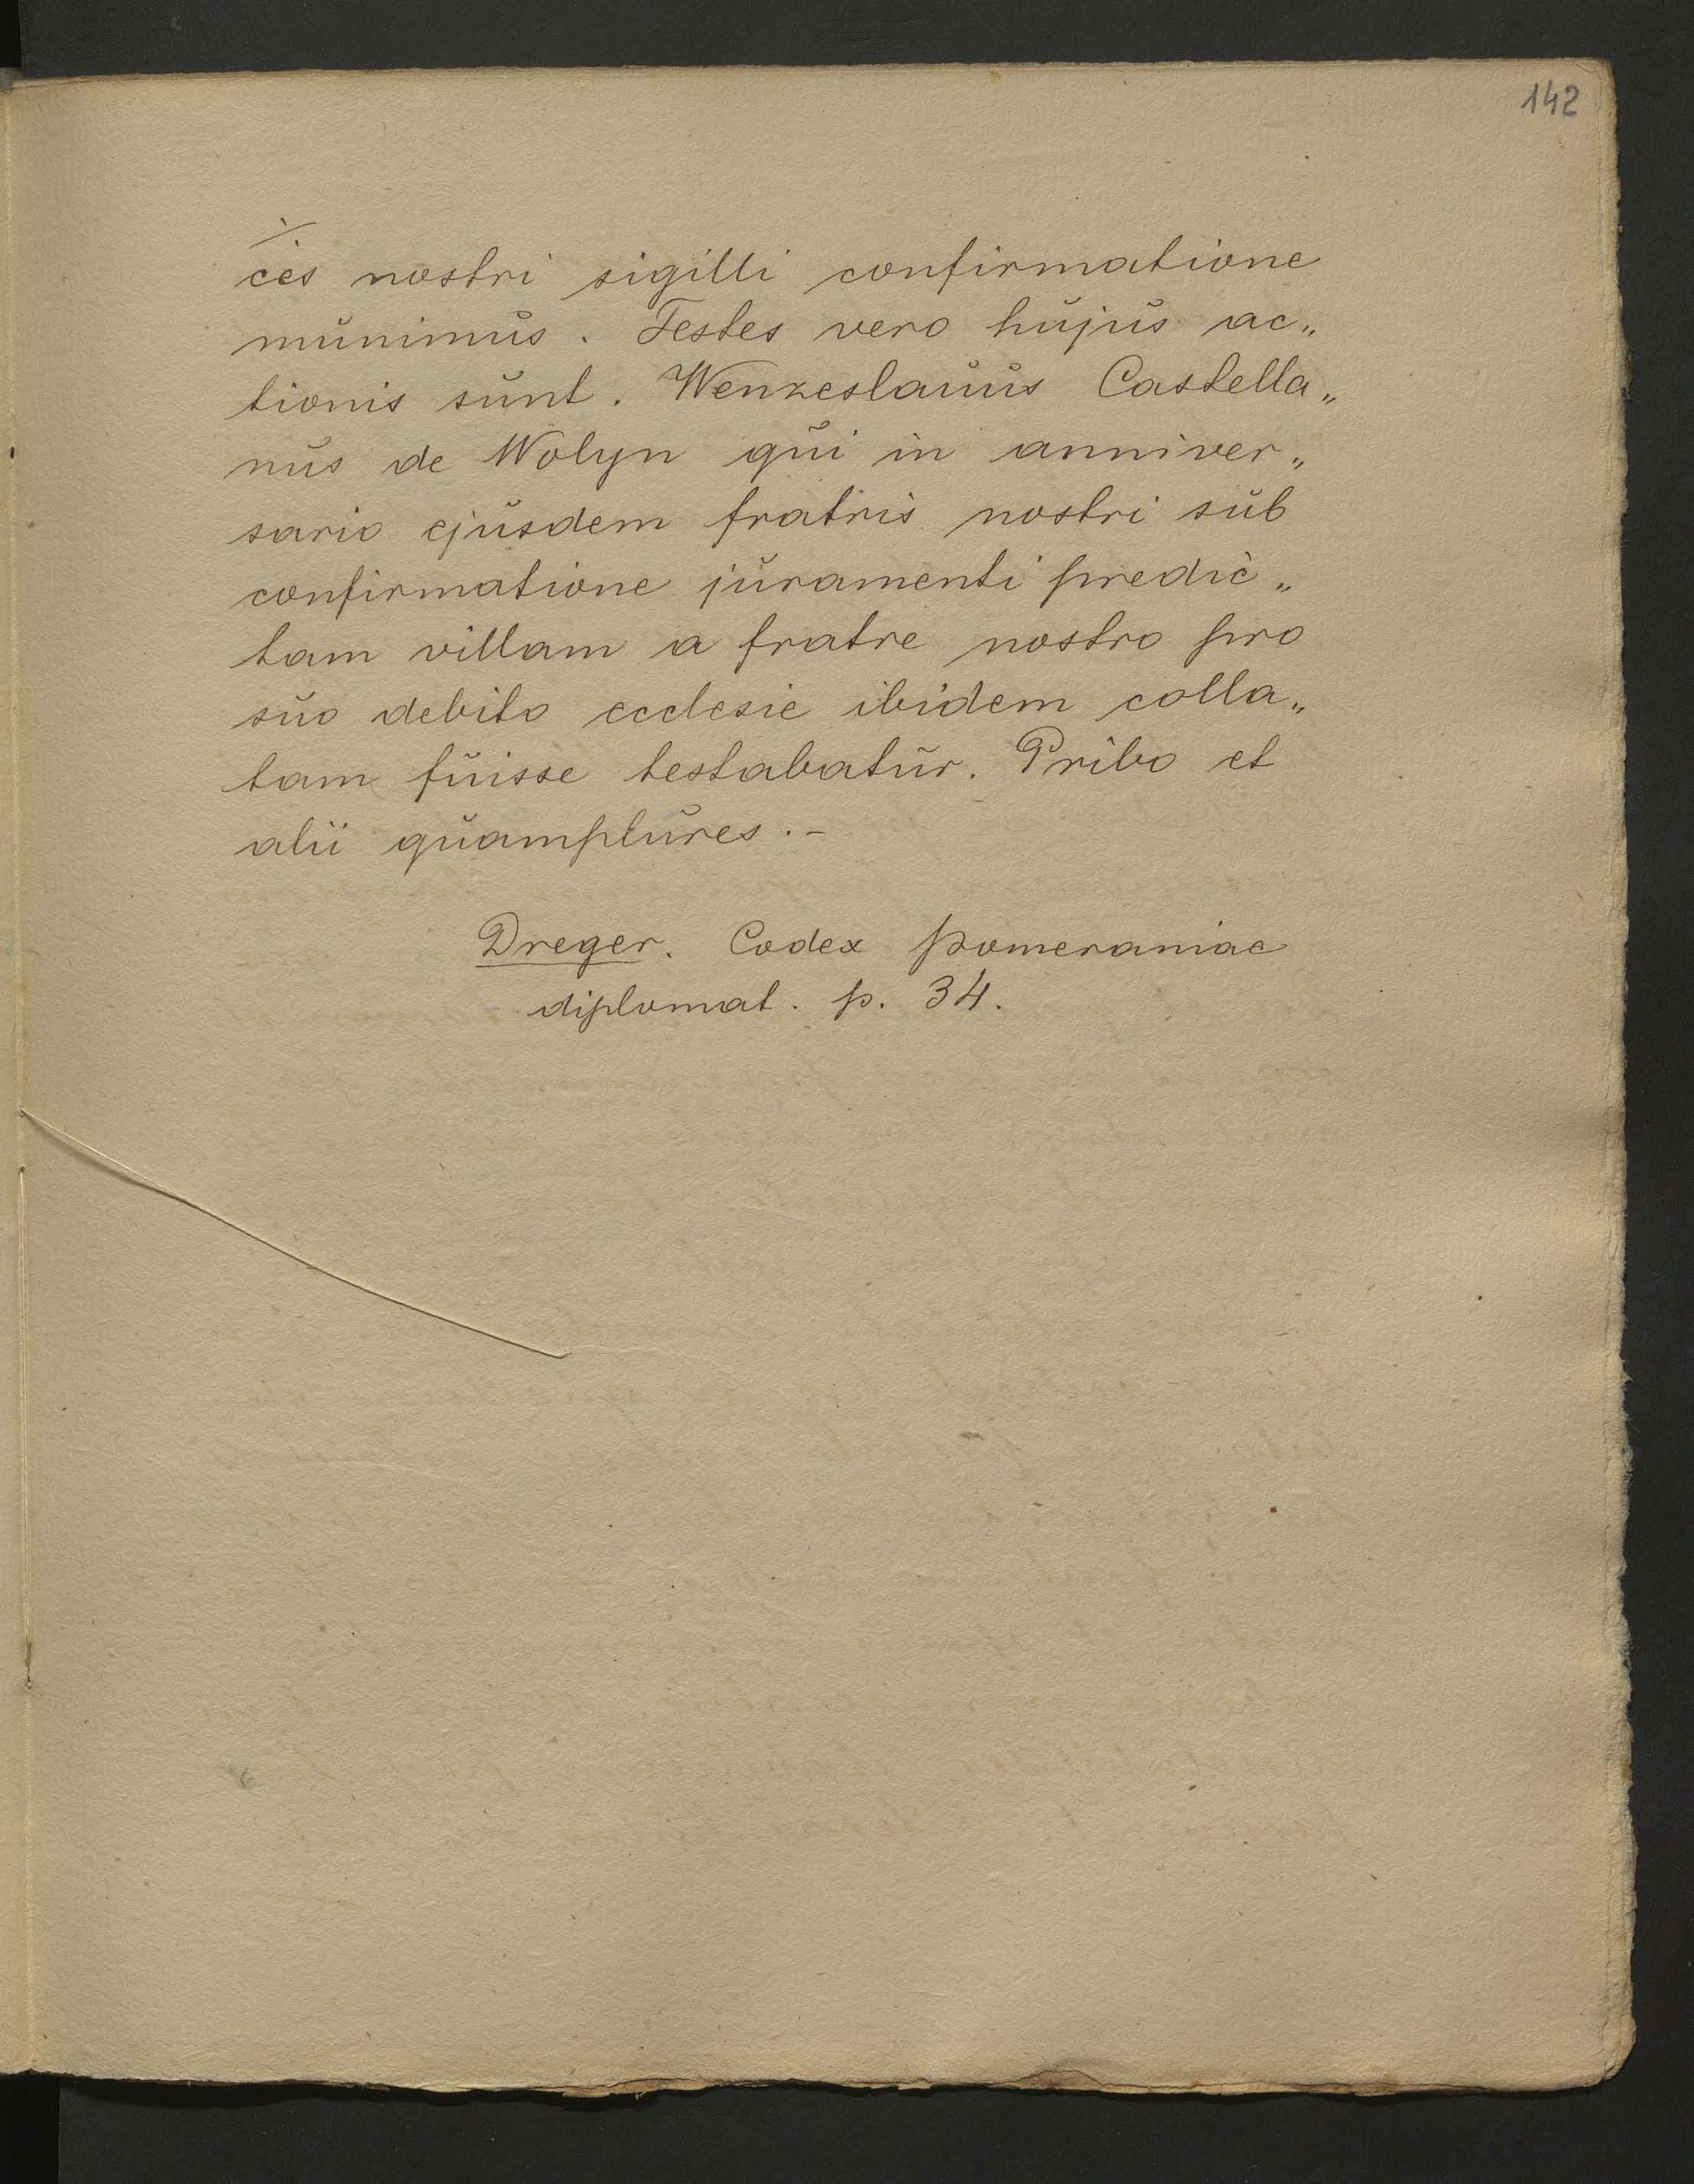 142
ces nostri sigilli confirmatione
munimus. Testes vero hujus ac„
tionis sunt. Wenzeslauus Castella„
nus de Wolyn qui in anniver„
sario ejusdem fratris nostri sub
confirmatione juramenti predic„
tam villam a fratre nostro pro
suo debito ecclesie ibidem colla„
tam fuisse testabatur. Pribo et
alii quamplures.-
Dreger. Codex Pomeraniae
diplomat. p. 34.